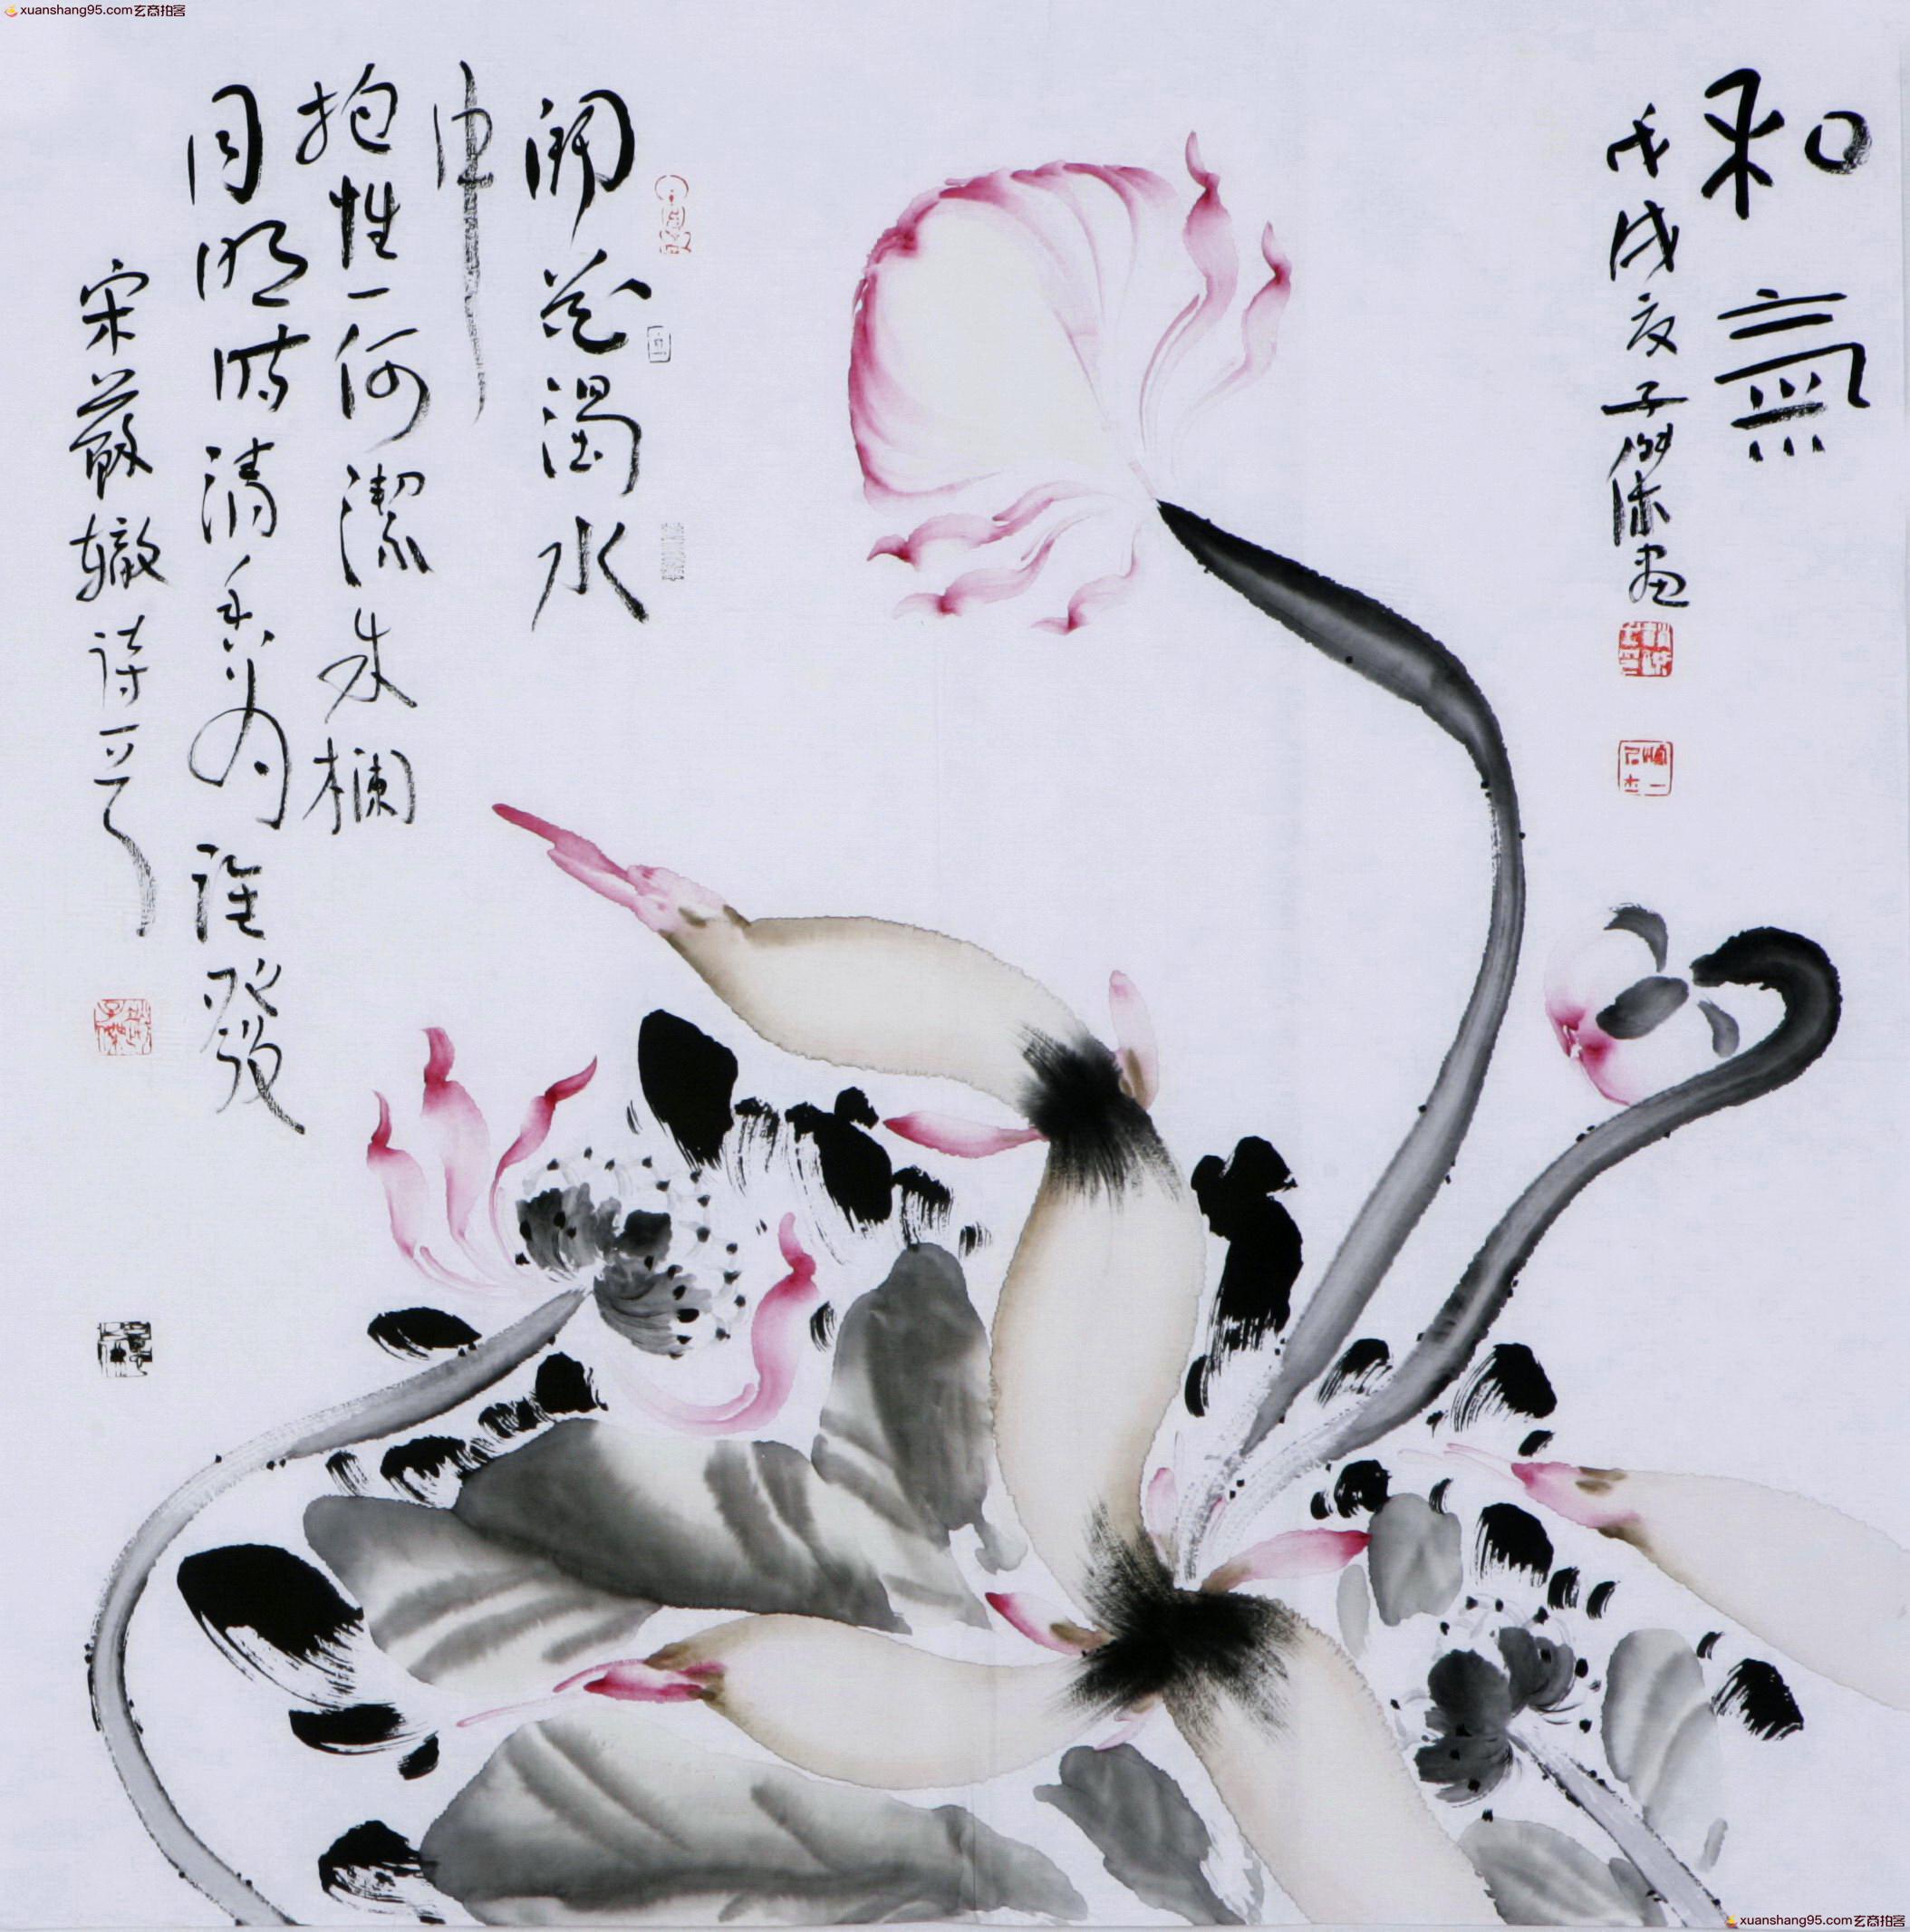 xuanshang95.com玄商拍客
和氣
戊戌夏子傑保畫
開花濁水
中
抱性一何潔朱欄
月明時清香為誰發
宋蘇轍詩一首
xuanshang95.com玄商拍客